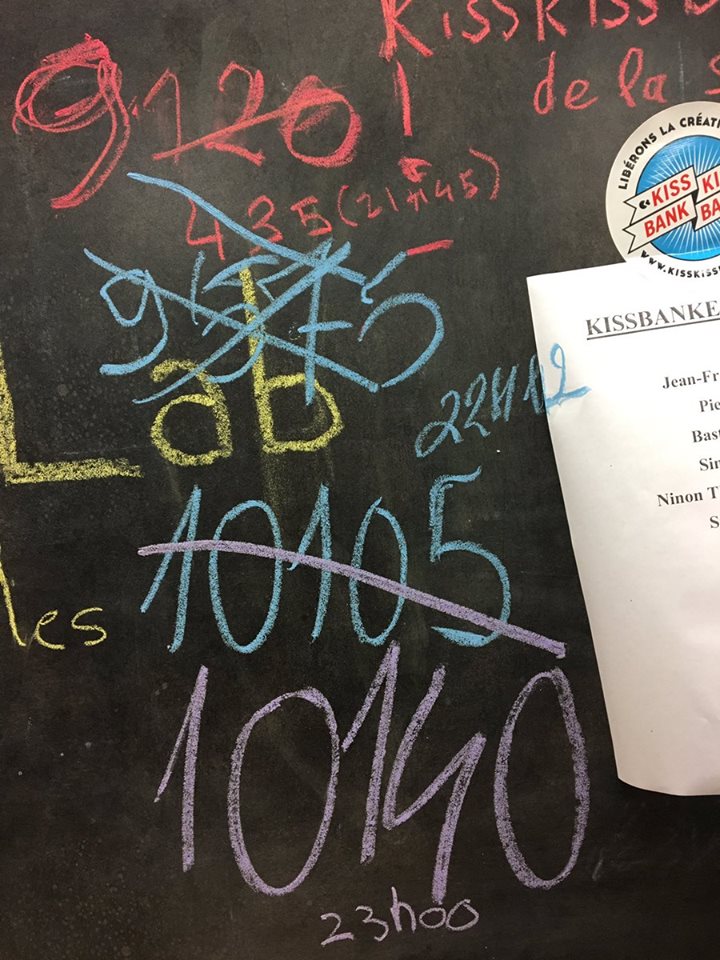 KissKiss
de la
9120
435 (21h45)
LIBÉRONS LA CRÉATI
KISS KI
BANK BA
WWW.KISSKISS
KISSBANKE
Jean-Fr
Pie
Bast
Sin
Ninon T
S
Lab
22H12
10105
es
10140
23h00